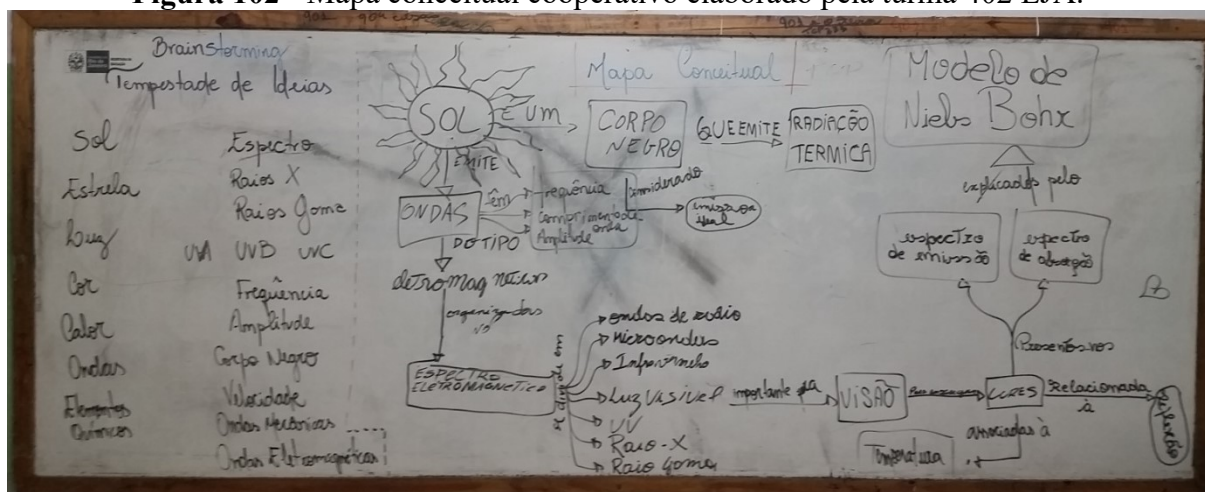 Figura 102 - Mapa conceitual cooperativo elaborado pela turma 402 EJA.
Brainstorming
Tempestade de Ideias
Sol
Estrela
Luz
Cor
Calor
Ondas
Elementos
Químicos
Espectro
Raios X
Raios Gama
UVA UVB UVC
Frequência
Amplitude
Corpo Negro
Velocidade
Ondas Mecânicas
Ondas Eletromagnéticas
Mapa Conceitual
SOL
É UM
CORPO
NEGRO
QUE EMITE
RADIAÇÃO
TERMICA
EMITE
ONDAS
têm
frequência
Comprimento de
onda
Amplitude
considerado
emissor
ideal
DO TIPO
eletromagnéticas
organizadas
no
ESPECTRO
ELETROMAGNÉTICO
ondas de rádio
Microondas
Infravermelho
Luz Visível
UV
Raio-X
Raio Gama
importante pra
VISÃO
CORES
Relacionada
à
reflexão
associadas à
Temperatura
Presentes nos
espectro
de emissão
espectro
de absorção
explicados pelo
Modelo de
Niels Bohr